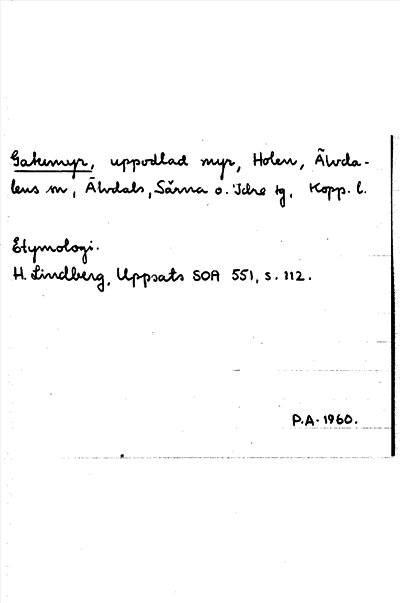 Gatemyr, uppodlad myr, Holen, Älvda-
lens sn, Älvdals, Särna o. Idre tg, Kopp. l.
Etymologi.
H. Lindberg, Uppsats SOA 551, s. 112.
P.A. 1960.